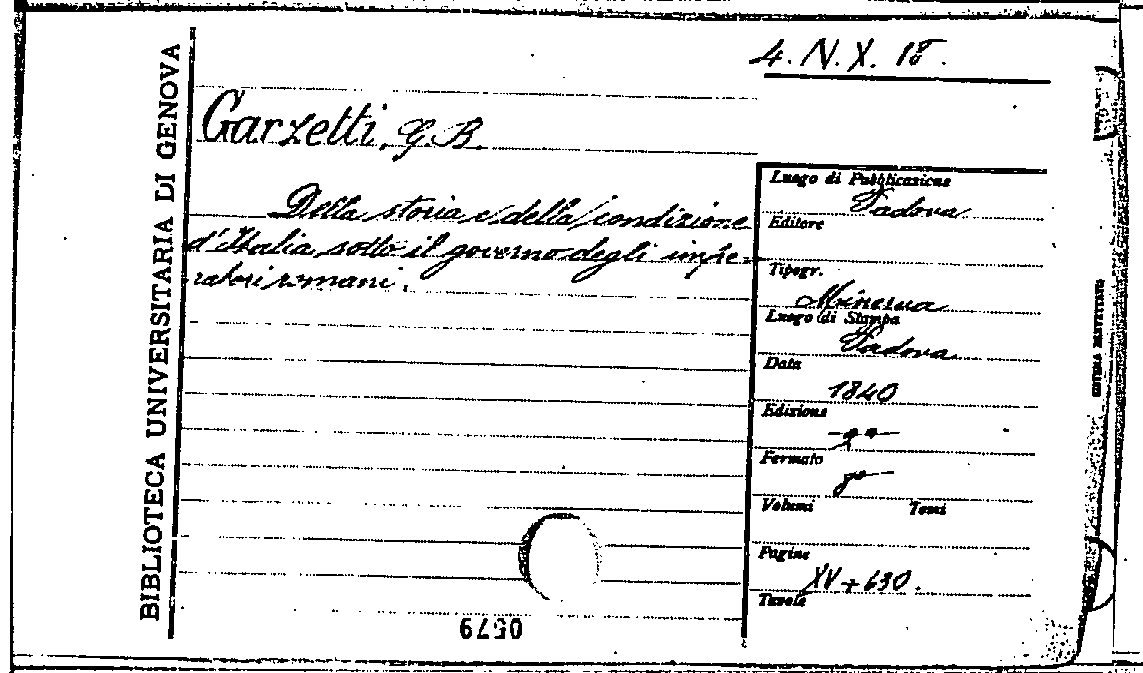 4. N. X. 18.
BIBLIOTECA UNIVERSITARIA DI GENOVA
Garzetti, G. B.
Della storia e della condizione
d'Italia sotto il governo degli impe-
ratori romani.
Luogo di Pubblicazione
Padova
Editore
Tipogr.
Minerva
Luogo di Stampa
Padova
Data
1840
Edizione
2ª
Formato
8°
Volumi Tomi
Pagine
XV + 630.
Tavole
0579